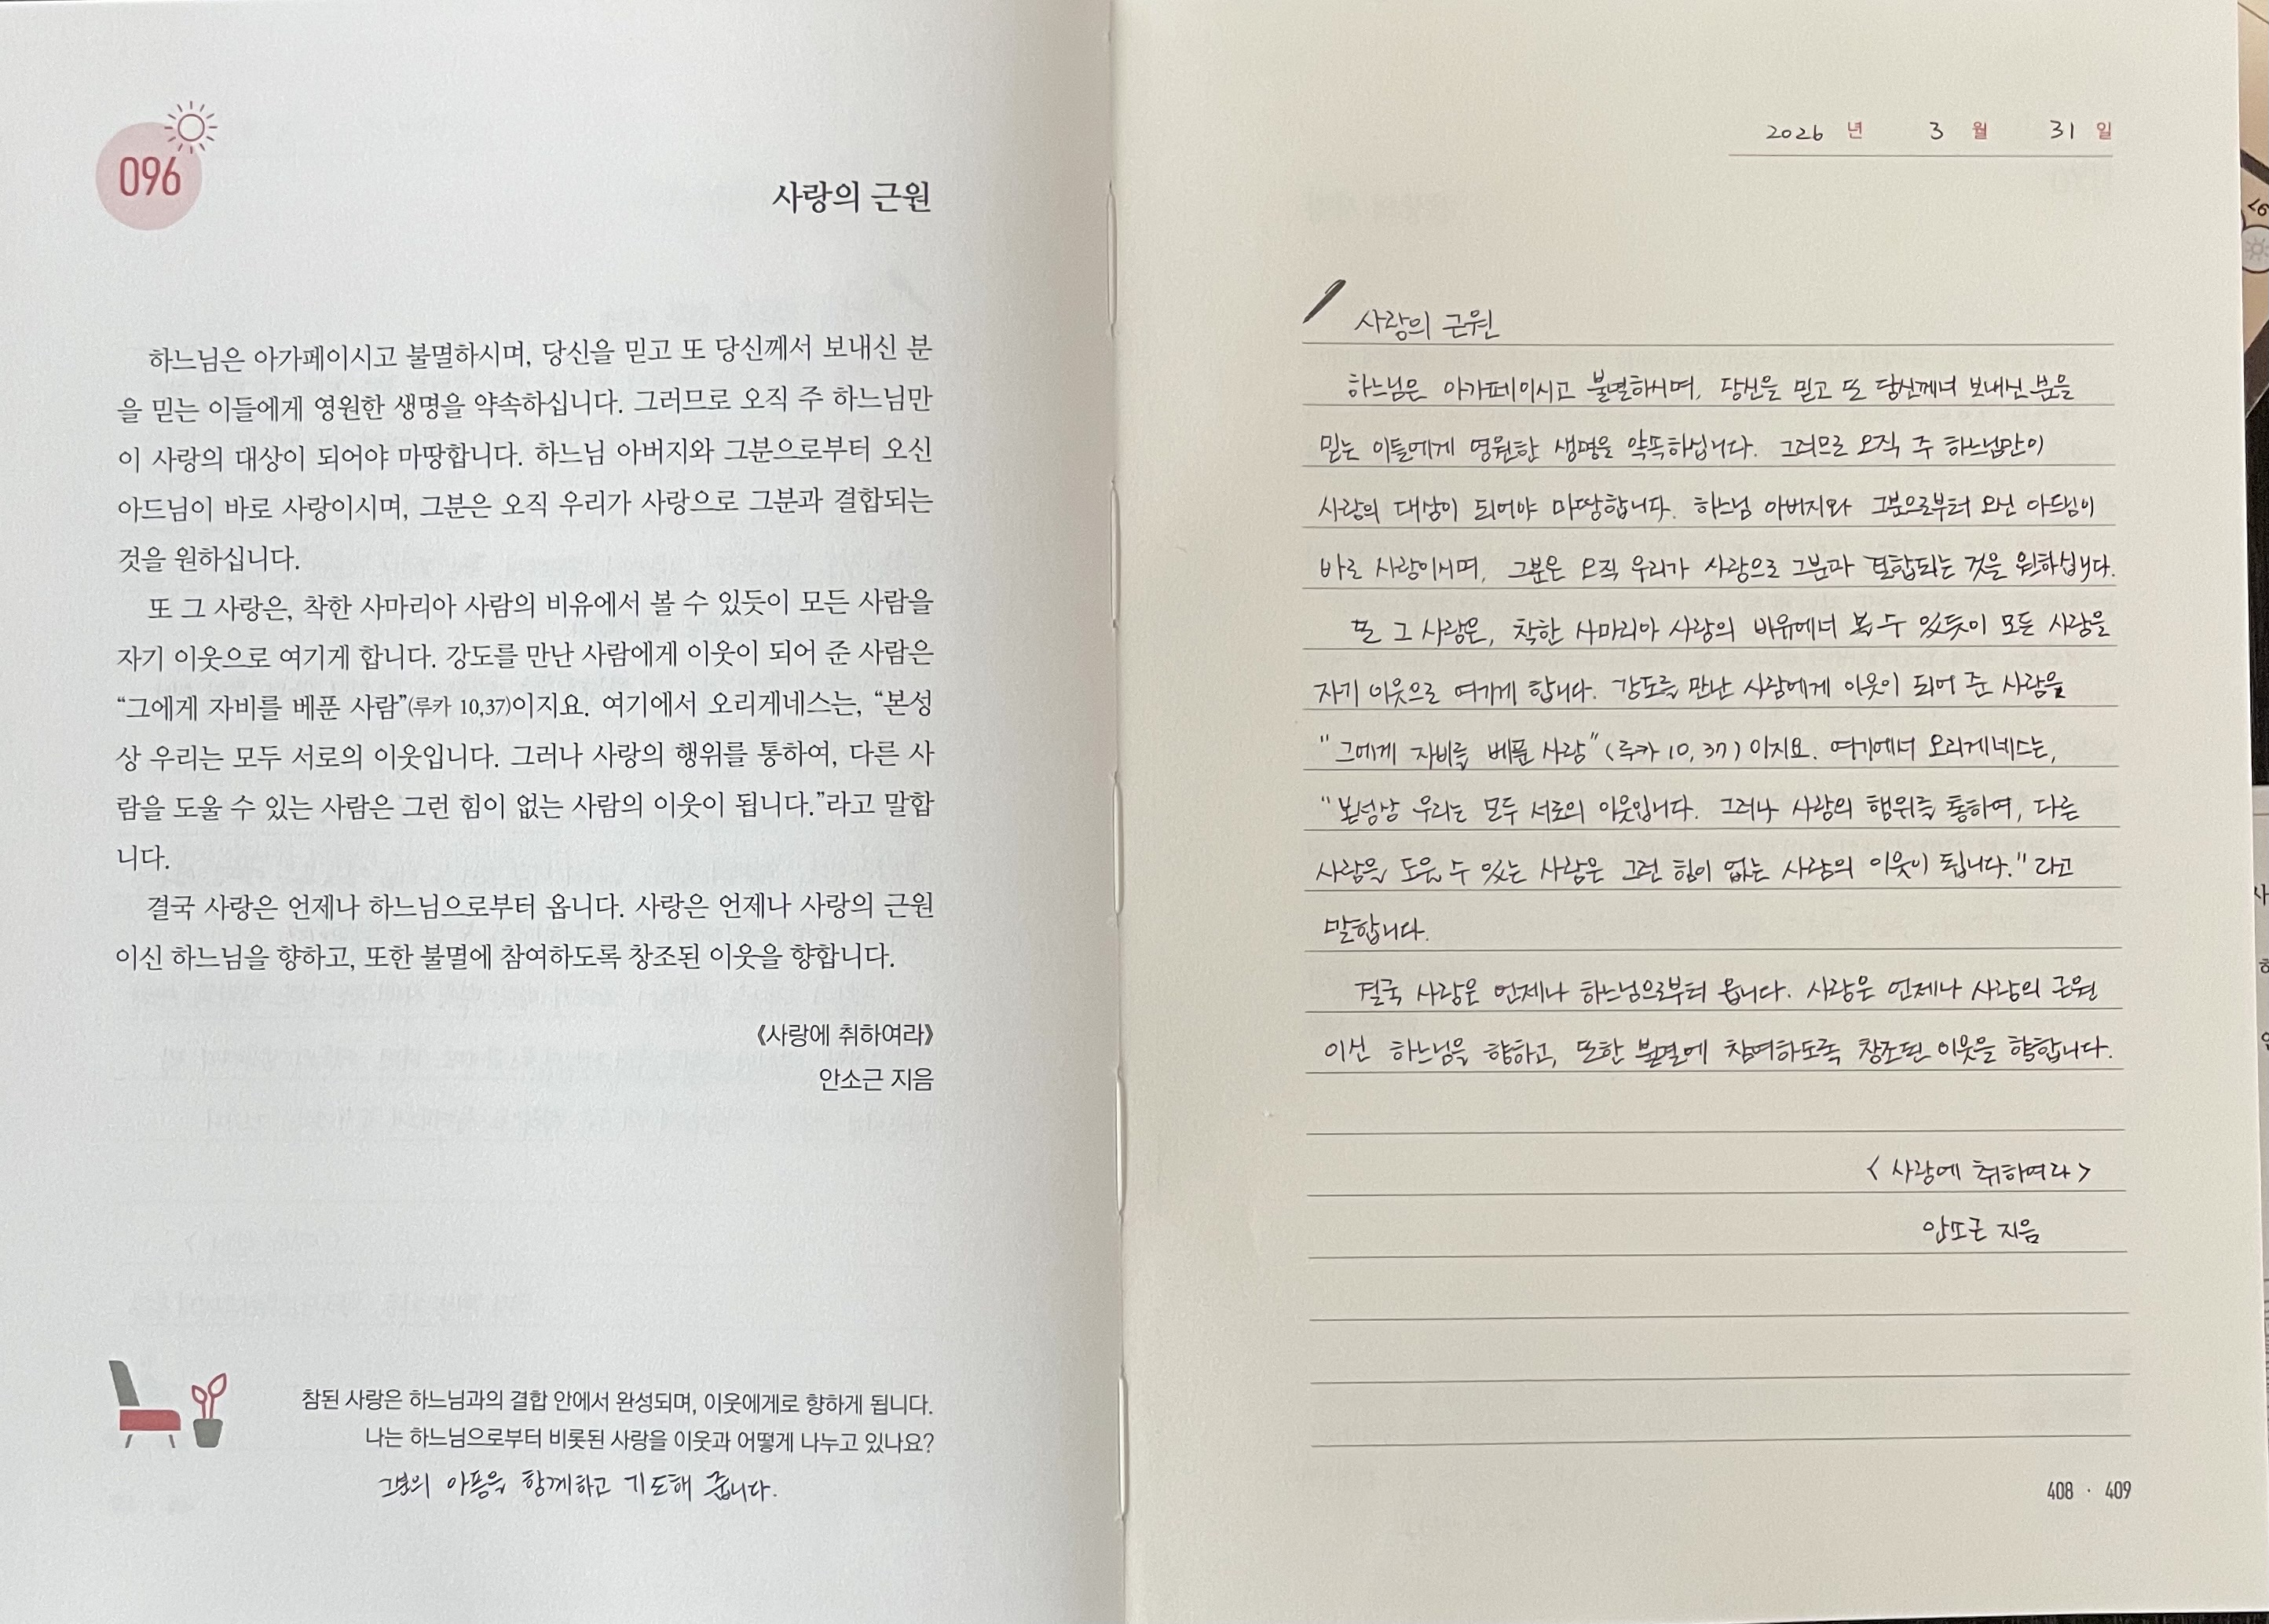 096
사랑의 근원
하느님은 아가페이시고 불멸하시며, 당신을 믿고 또 당신께서 보내신 분
을 믿는 이들에게 영원한 생명을 약속하십니다. 그러므로 오직 주 하느님만
이 사랑의 대상이 되어야 마땅합니다. 하느님 아버지와 그분으로부터 오신
아드님이 바로 사랑이시며, 그분은 오직 우리가 사랑으로 그분과 결합되는
것을 원하십니다.
또 그 사랑은, 착한 사마리아 사람의 비유에서 볼 수 있듯이 모든 사람을
자기 이웃으로 여기게 합니다. 강도를 만난 사람에게 이웃이 되어 준 사람은
“그에게 자비를 베푼 사람”(루카 10,37)이지요. 여기에서 오리게네스는, “본성
상 우리는 모두 서로의 이웃입니다. 그러나 사랑의 행위를 통하여, 다른 사
람을 도울 수 있는 사람은 그런 힘이 없는 사람의 이웃이 됩니다.”라고 말합
니다.
결국 사랑은 언제나 하느님으로부터 옵니다. 사랑은 언제나 사랑의 근원
이신 하느님을 향하고, 또한 불멸에 참여하도록 창조된 이웃을 향합니다.
《사랑에 취하여라》
안소근 지음
참된 사랑은 하느님과의 결합 안에서 완성되며, 이웃에게로 향하게 됩니다.
나는 하느님으로부터 비롯된 사랑을 이웃과 어떻게 나누고 있나요?
그분의 아픔을 함께하고 기도해 줍니다.
2026 년 3 월 31 일
사랑의 근원
하느님은 아가페이시고 불멸하시며, 당신을 믿고 또 당신께서 보내신 분을
믿는 이들에게 영원한 생명을 약속하십니다. 그러므로 오직 주 하느님만이
사랑의 대상이 되어야 마땅합니다. 하느님 아버지와 그분으로부터 오신 아드님이
바로 사랑이시며, 그분은 오직 우리가 사랑으로 그분과 결합되는 것을 원하십니다.
또 그 사랑은, 착한 사마리아 사람의 비유에서 볼 수 있듯이 모든 사람을
자기 이웃으로 여기게 합니다. 강도를 만난 사람에게 이웃이 되어 준 사람을
"그에게 자비를 베푼 사람"(루카 10, 37) 이지요. 여기에서 오리게네스는,
"본성상 우리는 모두 서로의 이웃입니다. 그러나 사랑의 행위를 통하여, 다른
사람을 도울 수 있는 사람은 그런 힘이 없는 사람의 이웃이 됩니다." 라고
말합니다.
결국 사랑은 언제나 하느님으로부터 옵니다. 사랑은 언제나 사랑의 근원
이신 하느님을 향하고, 또한 불멸에 참여하도록 창조된 이웃을 향합니다.
< 사랑에 취하여라 >
안소근 지음
408 · 409
97